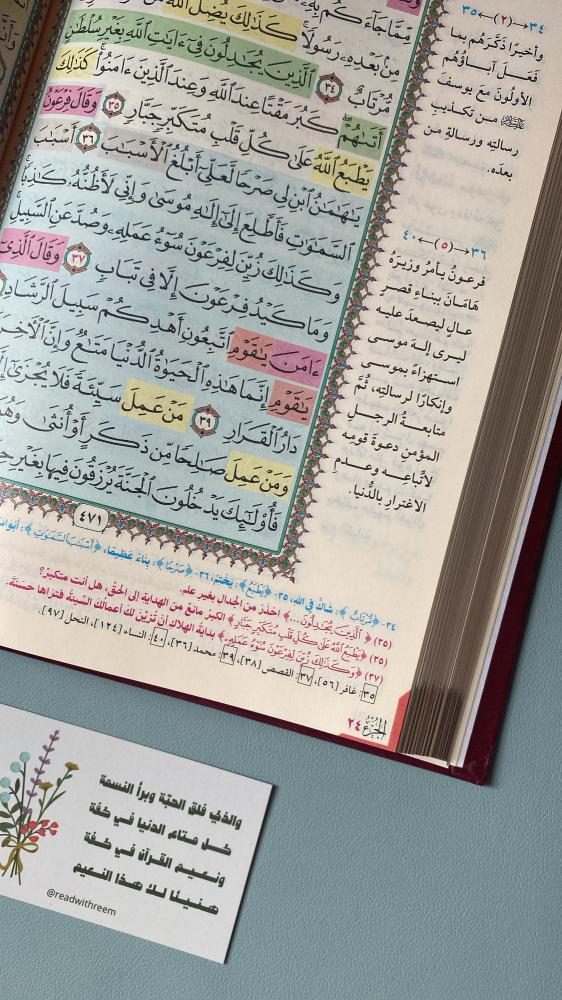 مِّمَّا جَآءَكُم بِهِۦ
مِنۢ بَعْدِهِۦ رَسُولًا كَذَٰلِكَ يُضِلُّ ٱللَّهُ مَنْ
مُّرْتَابٌ ٣٤ ٱلَّذِينَ يُجَٰدِلُونَ فِىٓ ءَايَٰتِ ٱللَّهِ بِغَيْرِ سُلْطَٰنٍ
أَتَىٰهُمْ كَبُرَ مَقْتًا عِندَ ٱللَّهِ وَعِندَ ٱلَّذِينَ ءَامَنُوا۟ كَذَٰلِكَ
يَطْبَعُ ٱللَّهُ عَلَىٰ كُلِّ قَلْبِ مُتَكَبِّرٍ جَبَّارٍ ٣٥ وَقَالَ فِرْعَوْنُ
يَٰهَٰمَٰنُ ٱبْنِ لِى صَرْحًا لَّعَلِّىٓ أَبْلُغُ ٱلْأَسْبَٰبَ ٣٦ أَسْبَٰبَ
ٱلسَّمَٰوَٰتِ فَأَطَّلِعَ إِلَىٰٓ إِلَٰهِ مُوسَىٰ وَإِنِّى لَأَظُنُّهُۥ كَٰذِبًا
وَكَذَٰلِكَ زُيِّنَ لِفِرْعَوْنَ سُوٓءُ عَمَلِهِۦ وَصُدَّ عَنِ ٱلسَّبِيلِ
وَمَا كَيْدُ فِرْعَوْنَ إِلَّا فِى تَبَابٍ ٣٧ وَقَالَ ٱلَّذِىٓ
ءَامَنَ يَٰقَوْمِ ٱتَّبِعُونِ أَهْدِكُمْ سَبِيلَ ٱلرَّشَادِ
يَٰقَوْمِ إِنَّمَا هَٰذِهِ ٱلْحَيَوٰةُ ٱلدُّنْيَا مَتَٰعٌ وَإِنَّ ٱلْءَاخِرَةَ
دَارُ ٱلْقَرَارِ ٣٩ مَنْ عَمِلَ سَيِّئَةً فَلَا يُجْزَىٰٓ إِلَّا
وَمَنْ عَمِلَ صَٰلِحًا مِّن ذَكَرٍ أَوْ أُنثَىٰ وَهُوَ
فَأُو۟لَٰٓئِكَ يَدْخُلُونَ ٱلْجَنَّةَ يُرْزَقُونَ فِيهَا بِغَيْرِ
٤٧١
٣٤←(٢)→٣٥
وأخيرًا ذكَّرَهُم بما
فَعَلَ آباؤُهُم
الأولُونَ معَ يوسفَ
ﷺ من تكذيبِ
رسالتِه ورسالةِ من
بعدَه.
٣٦←(٥)→٤٠
فرعونُ يأمرُ وزيرَهُ
هَامَانَ ببناءِ قصرٍ
عالٍ ليصعدَ عليه
ليرى إلهَ موسى
استهزاءً بموسى
وإنكارًا لرسالتِه، ثُمَّ
متابعةُ الرجلِ
المؤمنِ دعوةَ قومِه
لاتِّباعِه وعدمِ
الاغترارِ بالدُّنيا.
٣٤- ﴿مُّرْتَابٌ﴾: شاكٌّ في اللهِ، ٣٥- ﴿يَطْبَعُ﴾: يختمُ، ٣٦- ﴿صَرْحًا﴾: بناءً عظيمًا، ﴿أَسْبَٰبَ ٱلسَّمَٰوَٰتِ﴾: أبوابَ
(٣٥) ﴿ٱلَّذِينَ يُجَٰدِلُونَ...﴾ احذَرْ من الجدالِ بغيرِ علمٍ.
(٣٥) ﴿يَطْبَعُ ٱللَّهُ عَلَىٰ كُلِّ قَلْبِ مُتَكَبِّرٍ جَبَّارٍ﴾ الكبرُ مانعٌ من الهدايةِ إلى الحقِّ، هل أنت متكبرٌ؟
(٣٧) ﴿وَكَذَٰلِكَ زُيِّنَ لِفِرْعَوْنَ سُوٓءُ عَمَلِهِۦ﴾ بدايةُ الهلاكِ أن تُزيَّن لكَ أعمالُكَ السَّيئةُ فتراها حسنةً.
٣٥: غافر [٥٦]، ٣٧: القصص [٣٨]، ٣٩: محمد [٣٦]، ٤٠: النساء [١٢٤]، النحل [٩٧].
الجزء ٢٤
والذي فلق الحبّة وبرأ النسمة
كل متاع الدنيا في كفّة
ونعيم القرآن في كفّة
هنيئًا لك هذا النعيم
@readwithreem